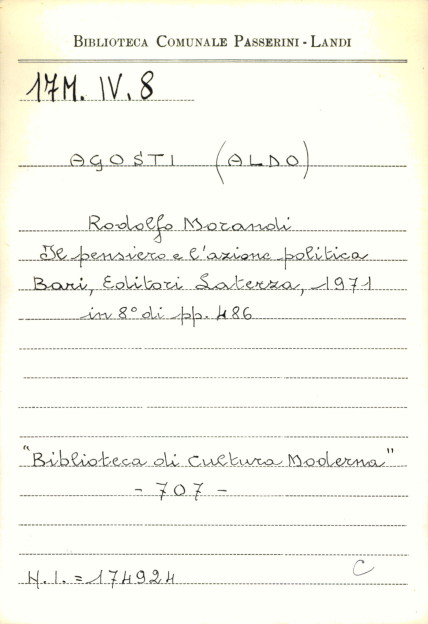 BIBLIOTECA COMUNALE PASSERINI - LANDI
17M. IV. 8
AGOSTI (ALDO)
Rodolfo Morandi
Il pensiero e l'azione politica
Bari, Editori Laterza, 1971
in 8° di pp. 486
"Biblioteca di Cultura Moderna"
- 707 -
N.I. = 174924
C